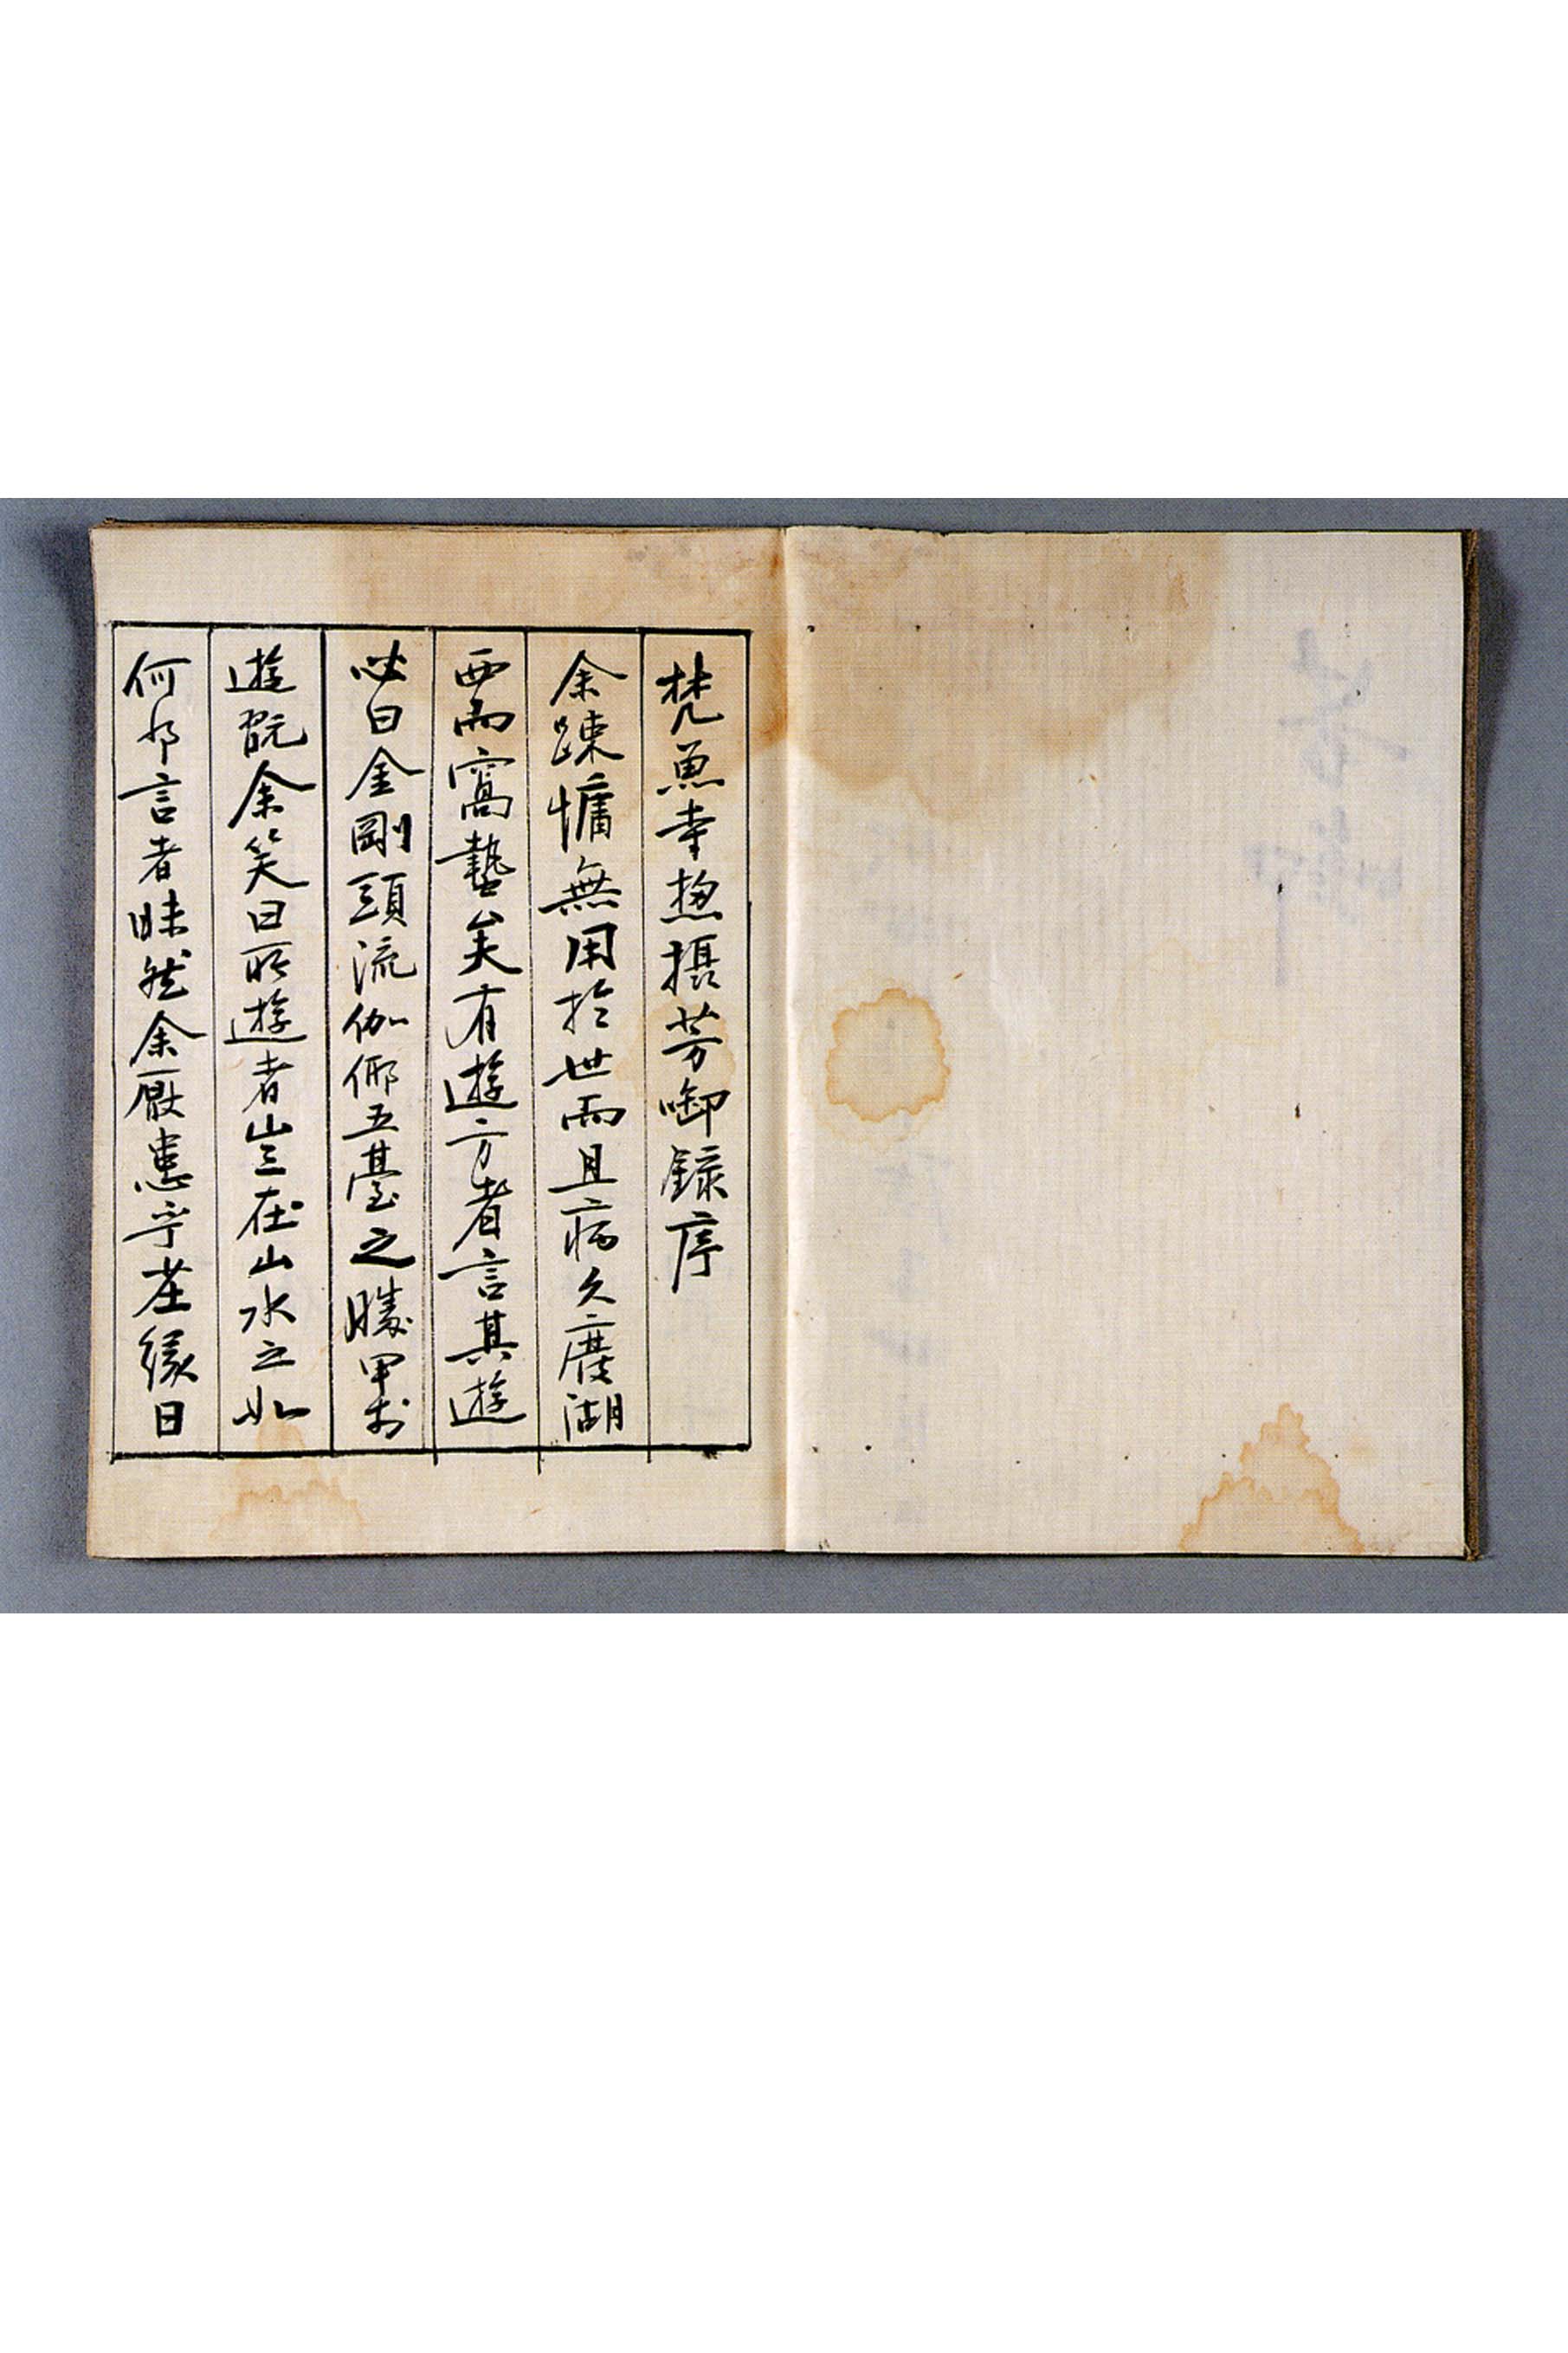 梵魚寺摠攝芳啣録序
余踈慵無用於世而且病久廢湖
西而窩蟄矣有遊方者言其遊
必曰金剛頭流伽倻五臺之勝甲於
遊翫余笑曰所遊者豈在山水之如
何耶言者昧然余厭患乎茬緣日